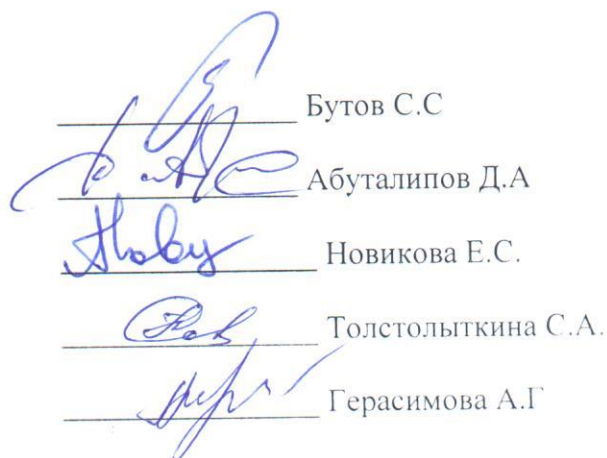 Бутов С.С
Абуталипов Д.А
Новикова Е.С.
Толстолыткина С.А.
Герасимова А.Г